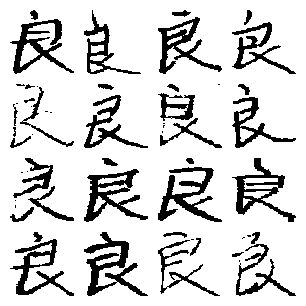 良良良良
良良良良
良良良良
良良良良